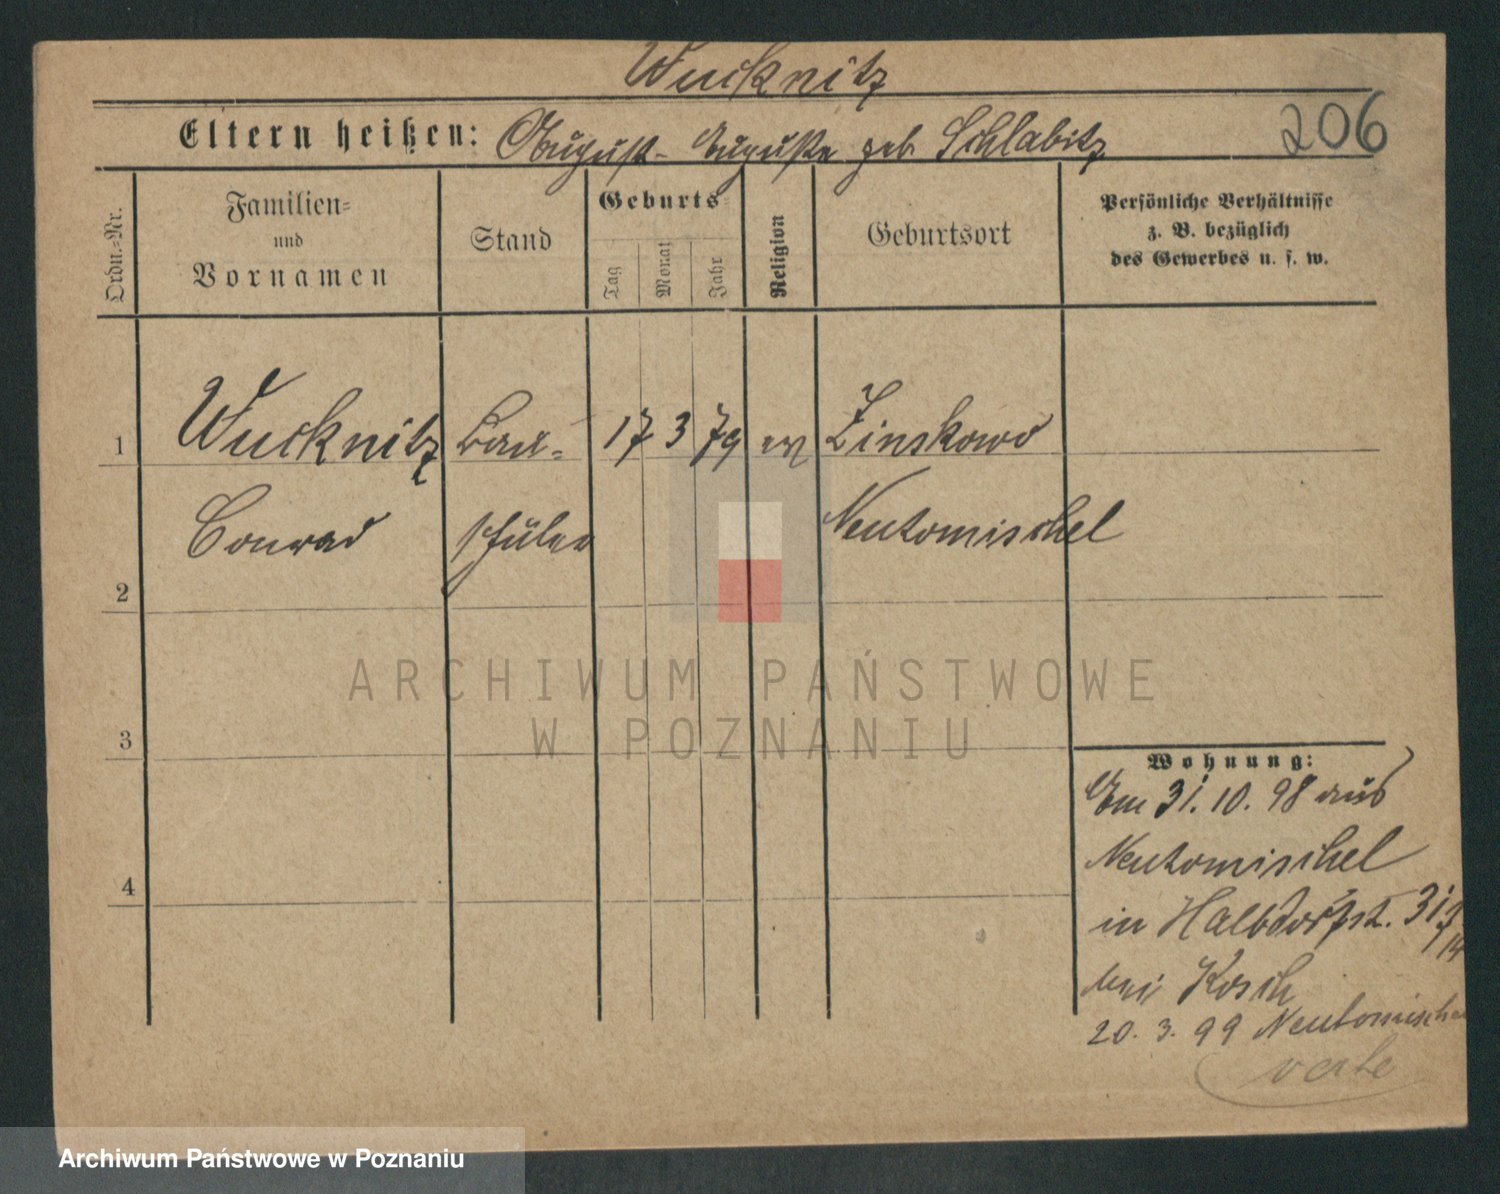 Wucknitz
Eltern heißen: August - Auguste geb. Schlabitz
206
Ordn.=Nr.
Familien=
und
Vornamen
Stand
Geburts
Tag
Monat
Jahr
Religion
Geburtsort
Persönliche Verhältnisse
z. B. bezüglich
des Gewerbes u. s. w.
1 Wucknitz Bau= 17 3 79 ev Zinskowo
Conrad schüler Neutomischel
2
3
4
Wohnung:
Am 31. 10. 98 aus
Neutomischel
in Halbdorfst. 31
bei Kosch
20. 3. 99 Neutomischel
verte
ARCHIWUM PAŃSTWOWE
W POZNANIU
Archiwum Państwowe w Poznaniu